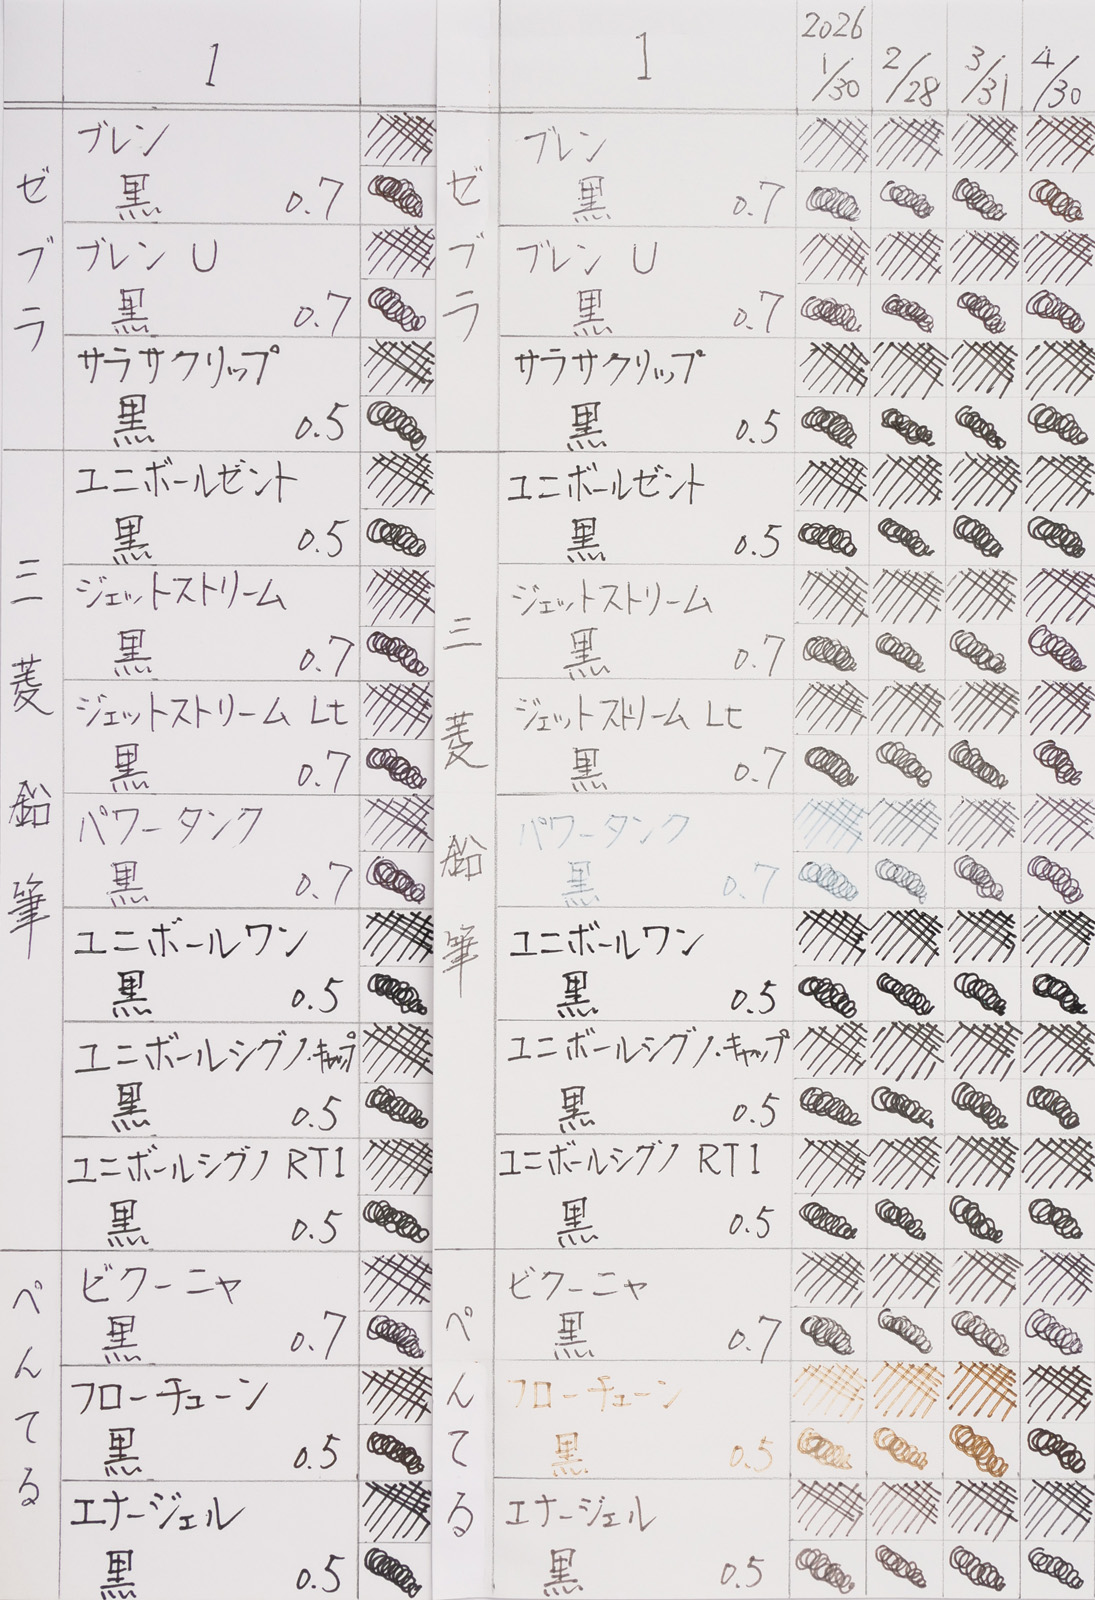 1
ゼブラ
ブレン
黒 0.7
ブレン U
黒 0.7
サラサクリップ
黒 0.5
三菱鉛筆
ユニボールゼント
黒 0.5
ジェットストリーム
黒 0.7
ジェットストリーム Lt
黒 0.7
パワータンク
黒 0.7
ユニボールワン
黒 0.5
ユニボールシグノ・キャップ
黒 0.5
ユニボールシグノ RT1
黒 0.5
ぺんてる
ビクーニャ
黒 0.7
フローチューン
黒 0.5
エナージェル
黒 0.5
1
2026
1/30 2/28 3/31 4/30
ゼブラ
ブレン
黒 0.7
ブレン U
黒 0.7
サラサクリップ
黒 0.5
三菱鉛筆
ユニボールゼント
黒 0.5
ジェットストリーム
黒 0.7
ジェットストリーム Lt
黒 0.7
パワータンク
黒 0.7
ユニボールワン
黒 0.5
ユニボールシグノ・キャップ
黒 0.5
ユニボールシグノ RT1
黒 0.5
ぺんてる
ビクーニャ
黒 0.7
フローチューン
黒 0.5
エナージェル
黒 0.5